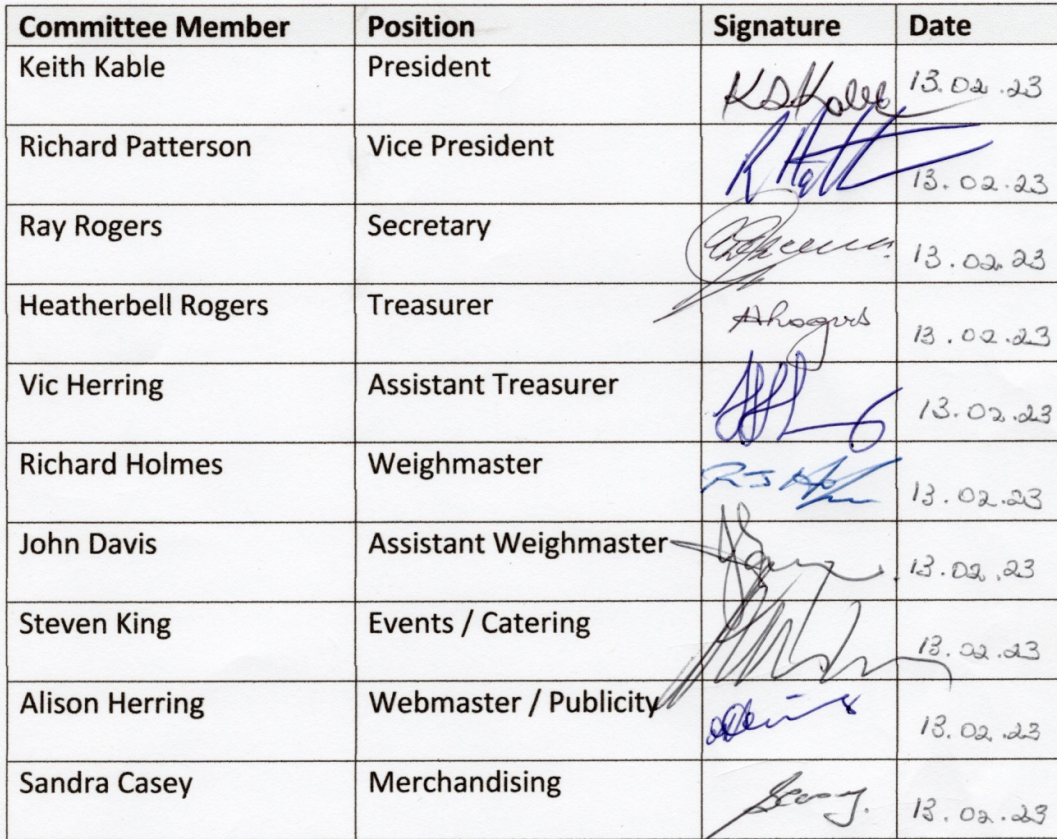 Committee Member Position Signature Date
Keith Kable President KDKable 13.02.23
Richard Patterson Vice President 13.02.23
Ray Rogers Secretary 13.02.23
Heatherbell Rogers Treasurer 13.02.23
Vic Herring Assistant Treasurer 13.02.23
Richard Holmes Weighmaster 13.02.23
John Davis Assistant Weighmaster 13.02.23
Steven King Events / Catering 13.02.23
Alison Herring Webmaster / Publicity 13.02.23
Sandra Casey Merchandising 13.02.23